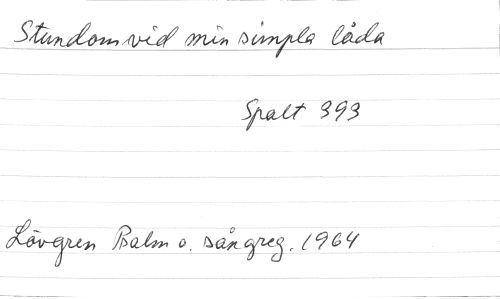 Stundom vid min simpla låda
Spalt 393
Lövgren Psalm o. sångreg. 1964